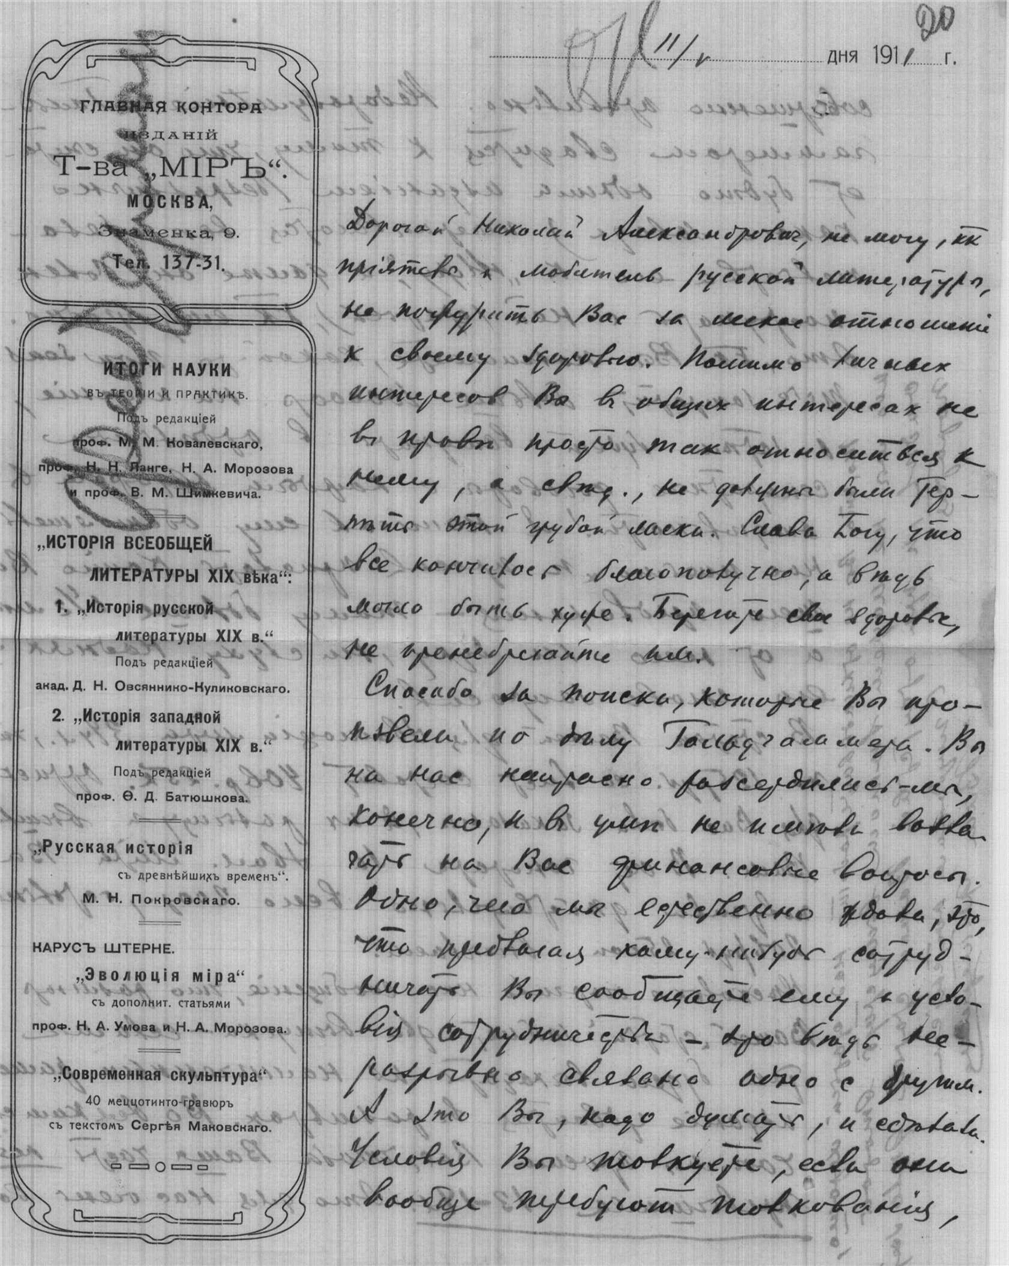 20
11/V дня 1911 г.
ГЛАВНАЯ КОНТОРА
ИЗДАНІЙ
Т-ва „МІРЪ“.
МОСКВА,
Знаменка, 9.
Тел. 137-31.
ИТОГИ НАУКИ
ВЪ ТЕОРІИ И ПРАКТИКѢ.
Подъ редакціей
проф. М. М. Ковалевскаго,
проф. Н. Н. Ланге, Н. А. Морозова
и проф. В. М. Шимкевича.
„ИСТОРІЯ ВСЕОБЩЕЙ
ЛИТЕРАТУРЫ XIX вѣка“:
1. „Исторія русской
литературы XIX в.“
Подъ редакціей
акад. Д. Н. Овсяннико-Куликовскаго.
2. „Исторія западной
литературы XIX в.“
Подъ редакціей
проф. Ѳ. Д. Батюшкова.
„Русская исторія
съ древнѣйшихъ временъ“.
М. Н. Покровскаго.
КАРУСЪ ШТЕРНЕ.
„Эволюція міра“
съ дополнит. статьями
проф. Н. А. Умова и Н. А. Морозова.
„Современная скульптура“
40 меццотинто-гравюръ
съ текстомъ Сергѣя Мановскаго.
Дорогой Николай Александрович, не могу, кк
пріятель и любитель русской литературы,
не пожурить Вас за легкое отношеніе
к своему здоровью. Помимо личных
интересов Вы в общих интересах не
в правѣ просто так относиться к
нему, а слѣд., не должны были тер-
пѣть этой грубой ласки. Слава Богу, что
все кончилось благополучно, а вѣдь
могло быть хуже. Берегите свое здоровье,
не пренебрегайте им.
Спасибо за поиски, которые Вы про-
извели по дѣлу Гольдгаммера. Вы
на нас напрасно разсердились – мы,
конечно, и в умѣ не имѣли возла-
гать на Вас финансовые вопросы.
Одно, чего мы естественно ждали, это,
что предлагая кому-нибудь сотруд-
ничать Вы сообщаете ему и усло-
вія сотрудничества – это вѣдь не-
разрывно связано одно с другим.
А это Вы, надо думать, и сдѣлали.
Условія Вы толкуете, если они
вообще требуют толкованія,